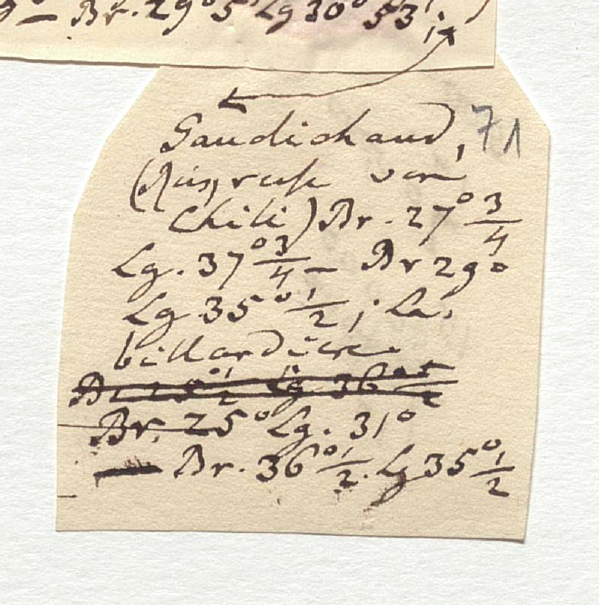 – Br. 29° 5' Lg 30° 53';
Gaudichaud, 71
(Ausreise von
Chili) Br. 27° 3/4
Lg. 37° 3/4 – Br 29°
Lg 35° 1/2; La-
billardière
Br. 25° Lg. 31°
– Br. 36° 1/2. Lg 35° 1/2